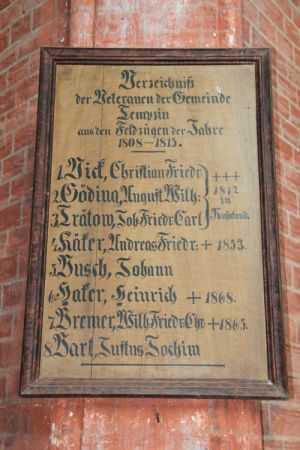 Verzeichniß
der Veteranen der Gemeinde
Tempzin
aus den Feldzügen der Jahre
1808–1815.
1. Vick, Christian Friedr:
2. Göding, August Wilh:
3. Trätow, Joh: Friedr: Carl
+++
1812
in
Rußland.
4. Käker, Andreas Friedr: + 1853.
5. Busch, Johann
6. Haker, Heinrich + 1868.
7. Bremer, Wilh: Friedr: Chr: + 1865.
8. Bart, Justus Jochim